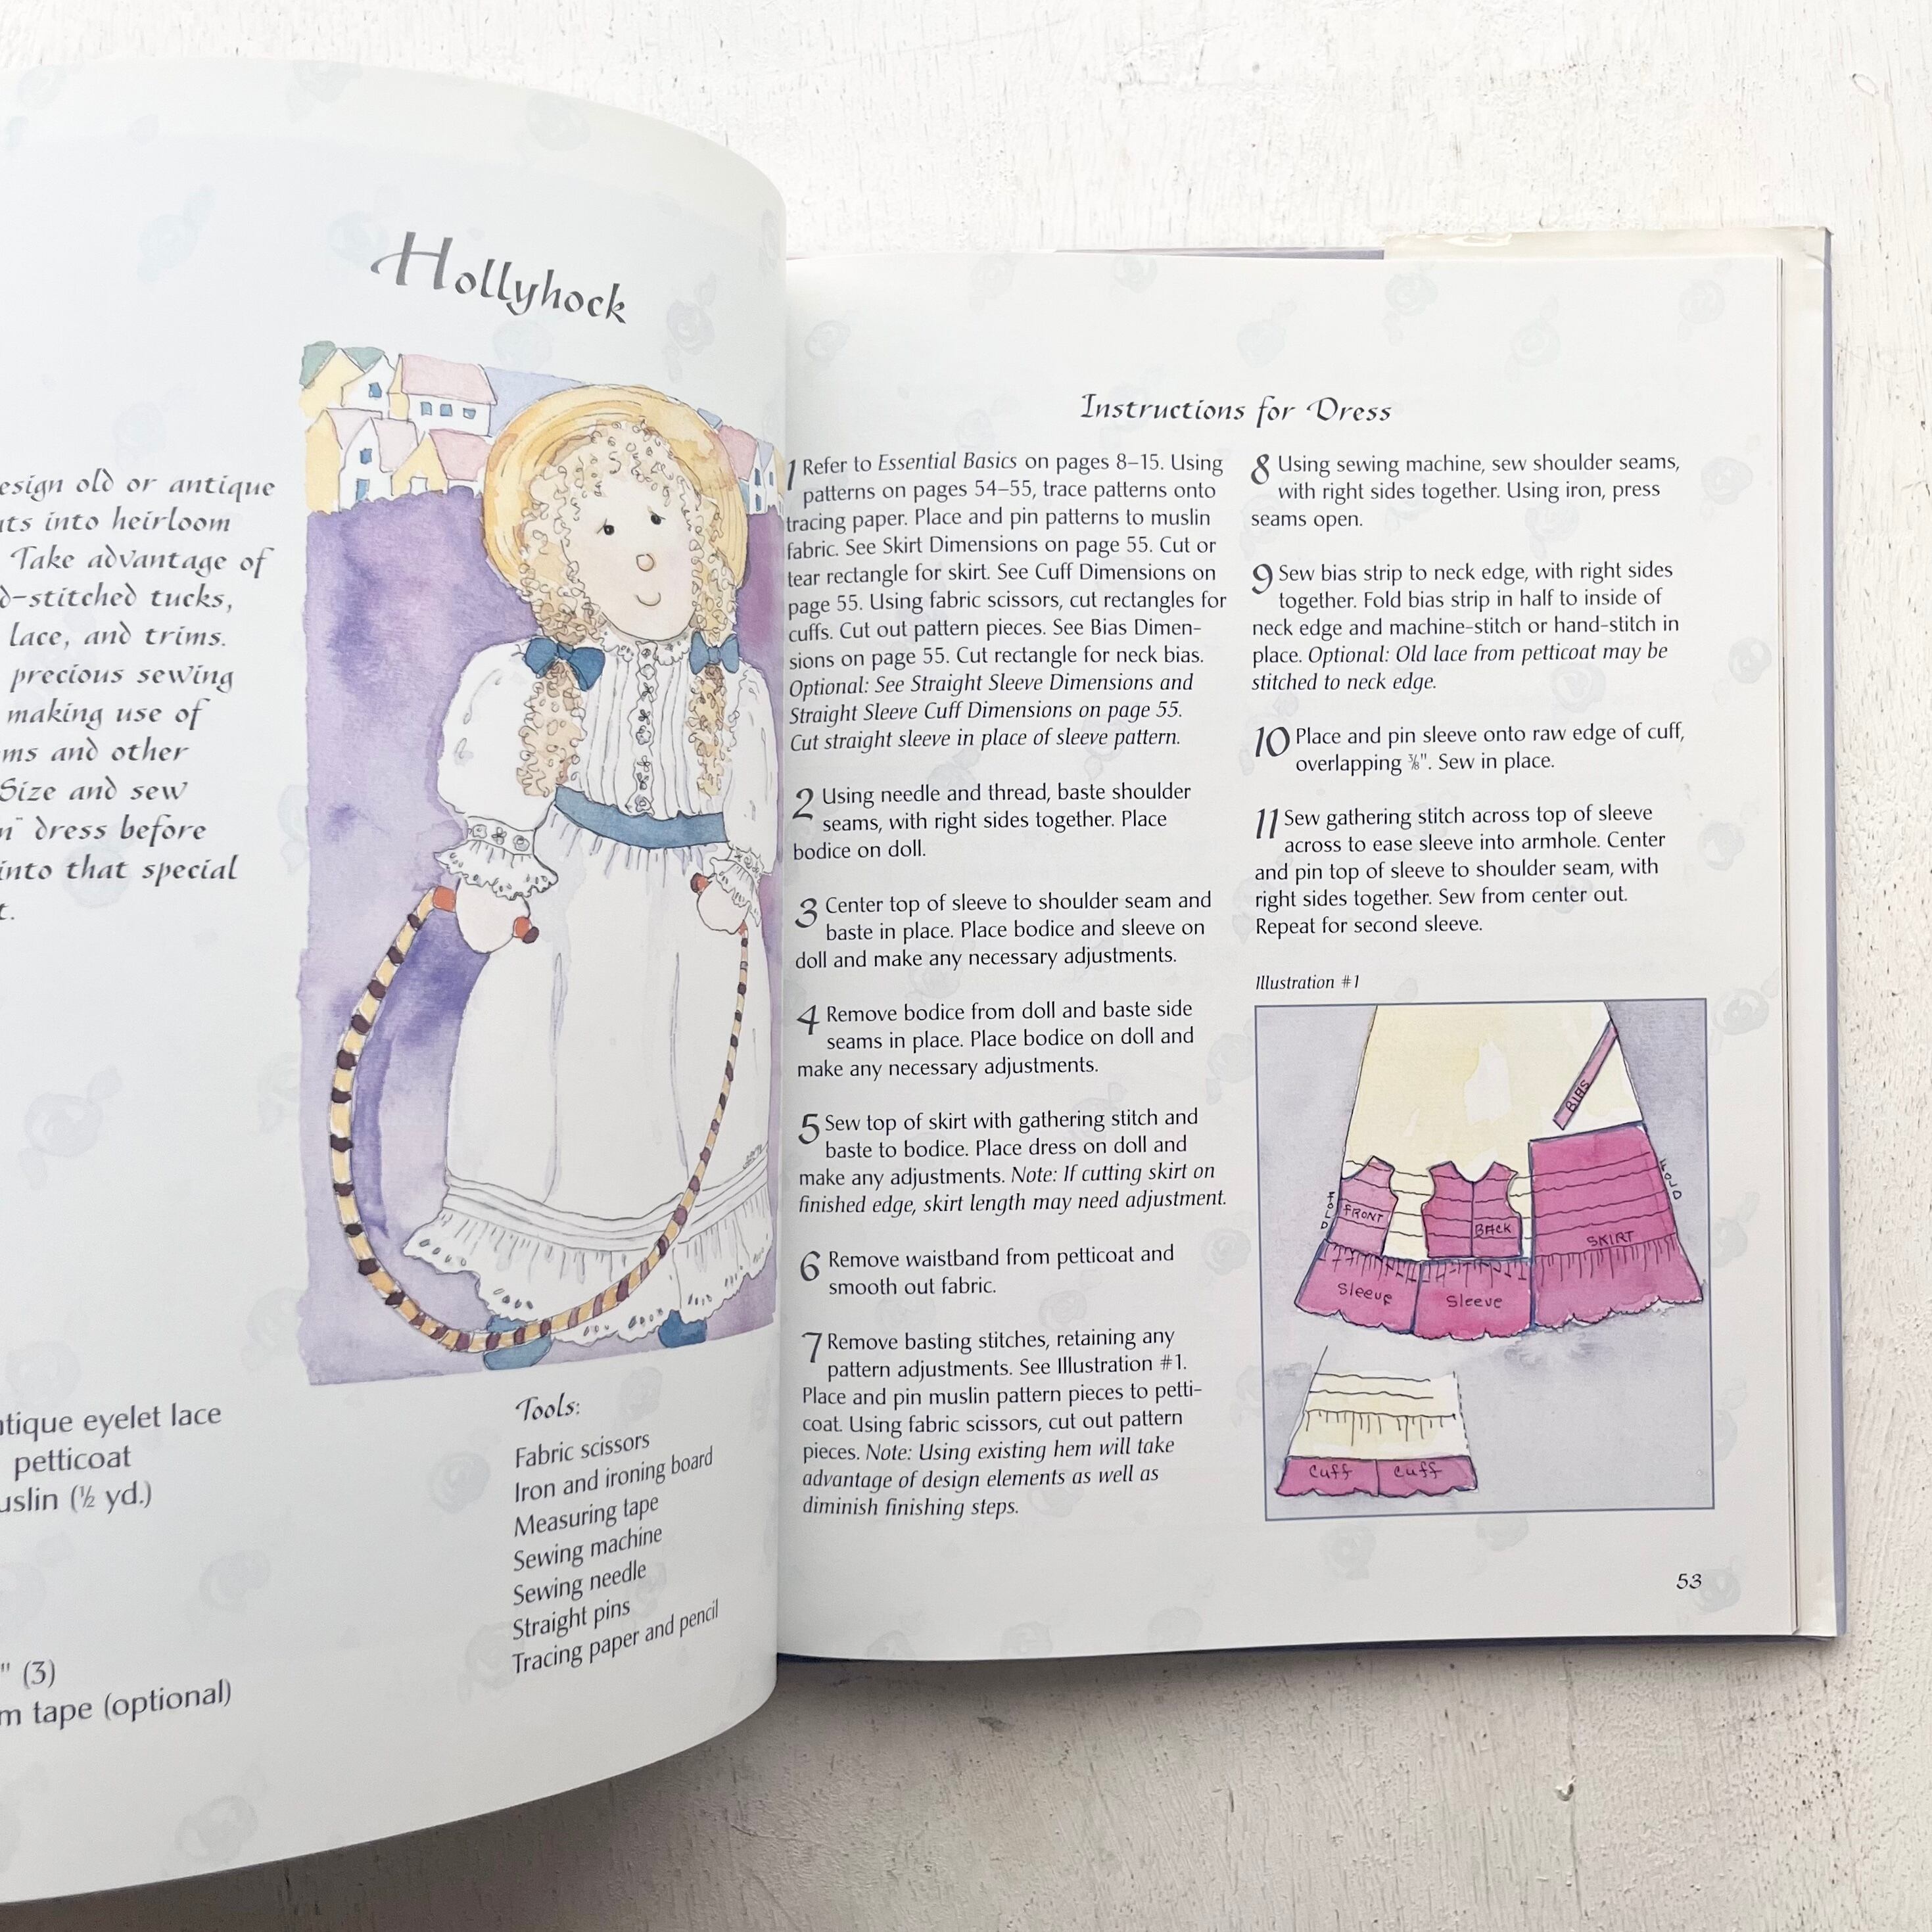 Hollyhock
design old or antique
into heirloom
Take advantage of
stitched tucks,
lace, and trims.
precious sewing
making use of
and other
Size and sew
dress before
into that special
eyelet lace
petticoat
(½ yd.)
" (3)
tape (optional)
Tools:
Fabric scissors
Iron and ironing board
Measuring tape
Sewing machine
Sewing needle
Straight pins
Tracing paper and pencil
Instructions for Dress
1 Refer to Essential Basics on pages 8–15. Using
patterns on pages 54–55, trace patterns onto
tracing paper. Place and pin patterns to muslin
fabric. See Skirt Dimensions on page 55. Cut or
tear rectangle for skirt. See Cuff Dimensions on
page 55. Using fabric scissors, cut rectangles for
cuffs. Cut out pattern pieces. See Bias Dimen-
sions on page 55. Cut rectangle for neck bias.
Optional: See Straight Sleeve Dimensions and
Straight Sleeve Cuff Dimensions on page 55.
Cut straight sleeve in place of sleeve pattern.
2 Using needle and thread, baste shoulder
seams, with right sides together. Place
bodice on doll.
3 Center top of sleeve to shoulder seam and
baste in place. Place bodice and sleeve on
doll and make any necessary adjustments.
4 Remove bodice from doll and baste side
seams in place. Place bodice on doll and
make any necessary adjustments.
5 Sew top of skirt with gathering stitch and
baste to bodice. Place dress on doll and
make any adjustments. Note: If cutting skirt on
finished edge, skirt length may need adjustment.
6 Remove waistband from petticoat and
smooth out fabric.
7 Remove basting stitches, retaining any
pattern adjustments. See Illustration #1.
Place and pin muslin pattern pieces to petti-
coat. Using fabric scissors, cut out pattern
pieces. Note: Using existing hem will take
advantage of design elements as well as
diminish finishing steps.
8 Using sewing machine, sew shoulder seams,
with right sides together. Using iron, press
seams open.
9 Sew bias strip to neck edge, with right sides
together. Fold bias strip in half to inside of
neck edge and machine-stitch or hand-stitch in
place. Optional: Old lace from petticoat may be
stitched to neck edge.
10 Place and pin sleeve onto raw edge of cuff,
overlapping ⅜". Sew in place.
11 Sew gathering stitch across top of sleeve
across to ease sleeve into armhole. Center
and pin top of sleeve to shoulder seam, with
right sides together. Sew from center out.
Repeat for second sleeve.
Illustration #1
BIAS
FOLD
FRONT
BACK
SKIRT
FOLD
Sleeve
Sleeve
Cuff
Cuff
53